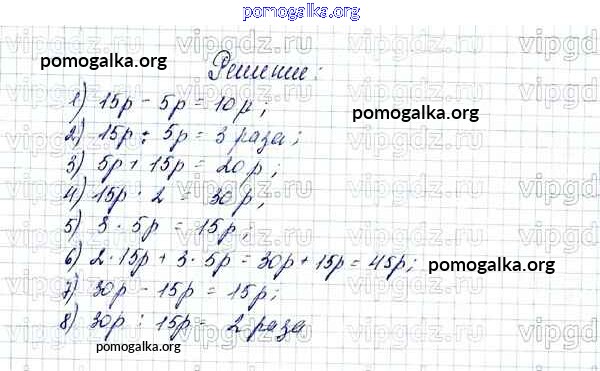 pomogalka.org
vipgdz.ru vipgdz.ru vipgdz
pomogalka.org
pomogalka.org
Решение:
1) 15р - 5р = 10р;
pomogalka.org
2) 15р : 5р = 3 раза;
3) 5р + 15р = 20р;
4) 15р · 2 = 30р;
5) 3 · 5р = 15р;
6) 2 · 15р + 3 · 5р = 30р + 15р = 45р;
pomogalka.org
7) 30р - 15р = 15р;
8) 30р : 15р = 2 раза
pomogalka.org